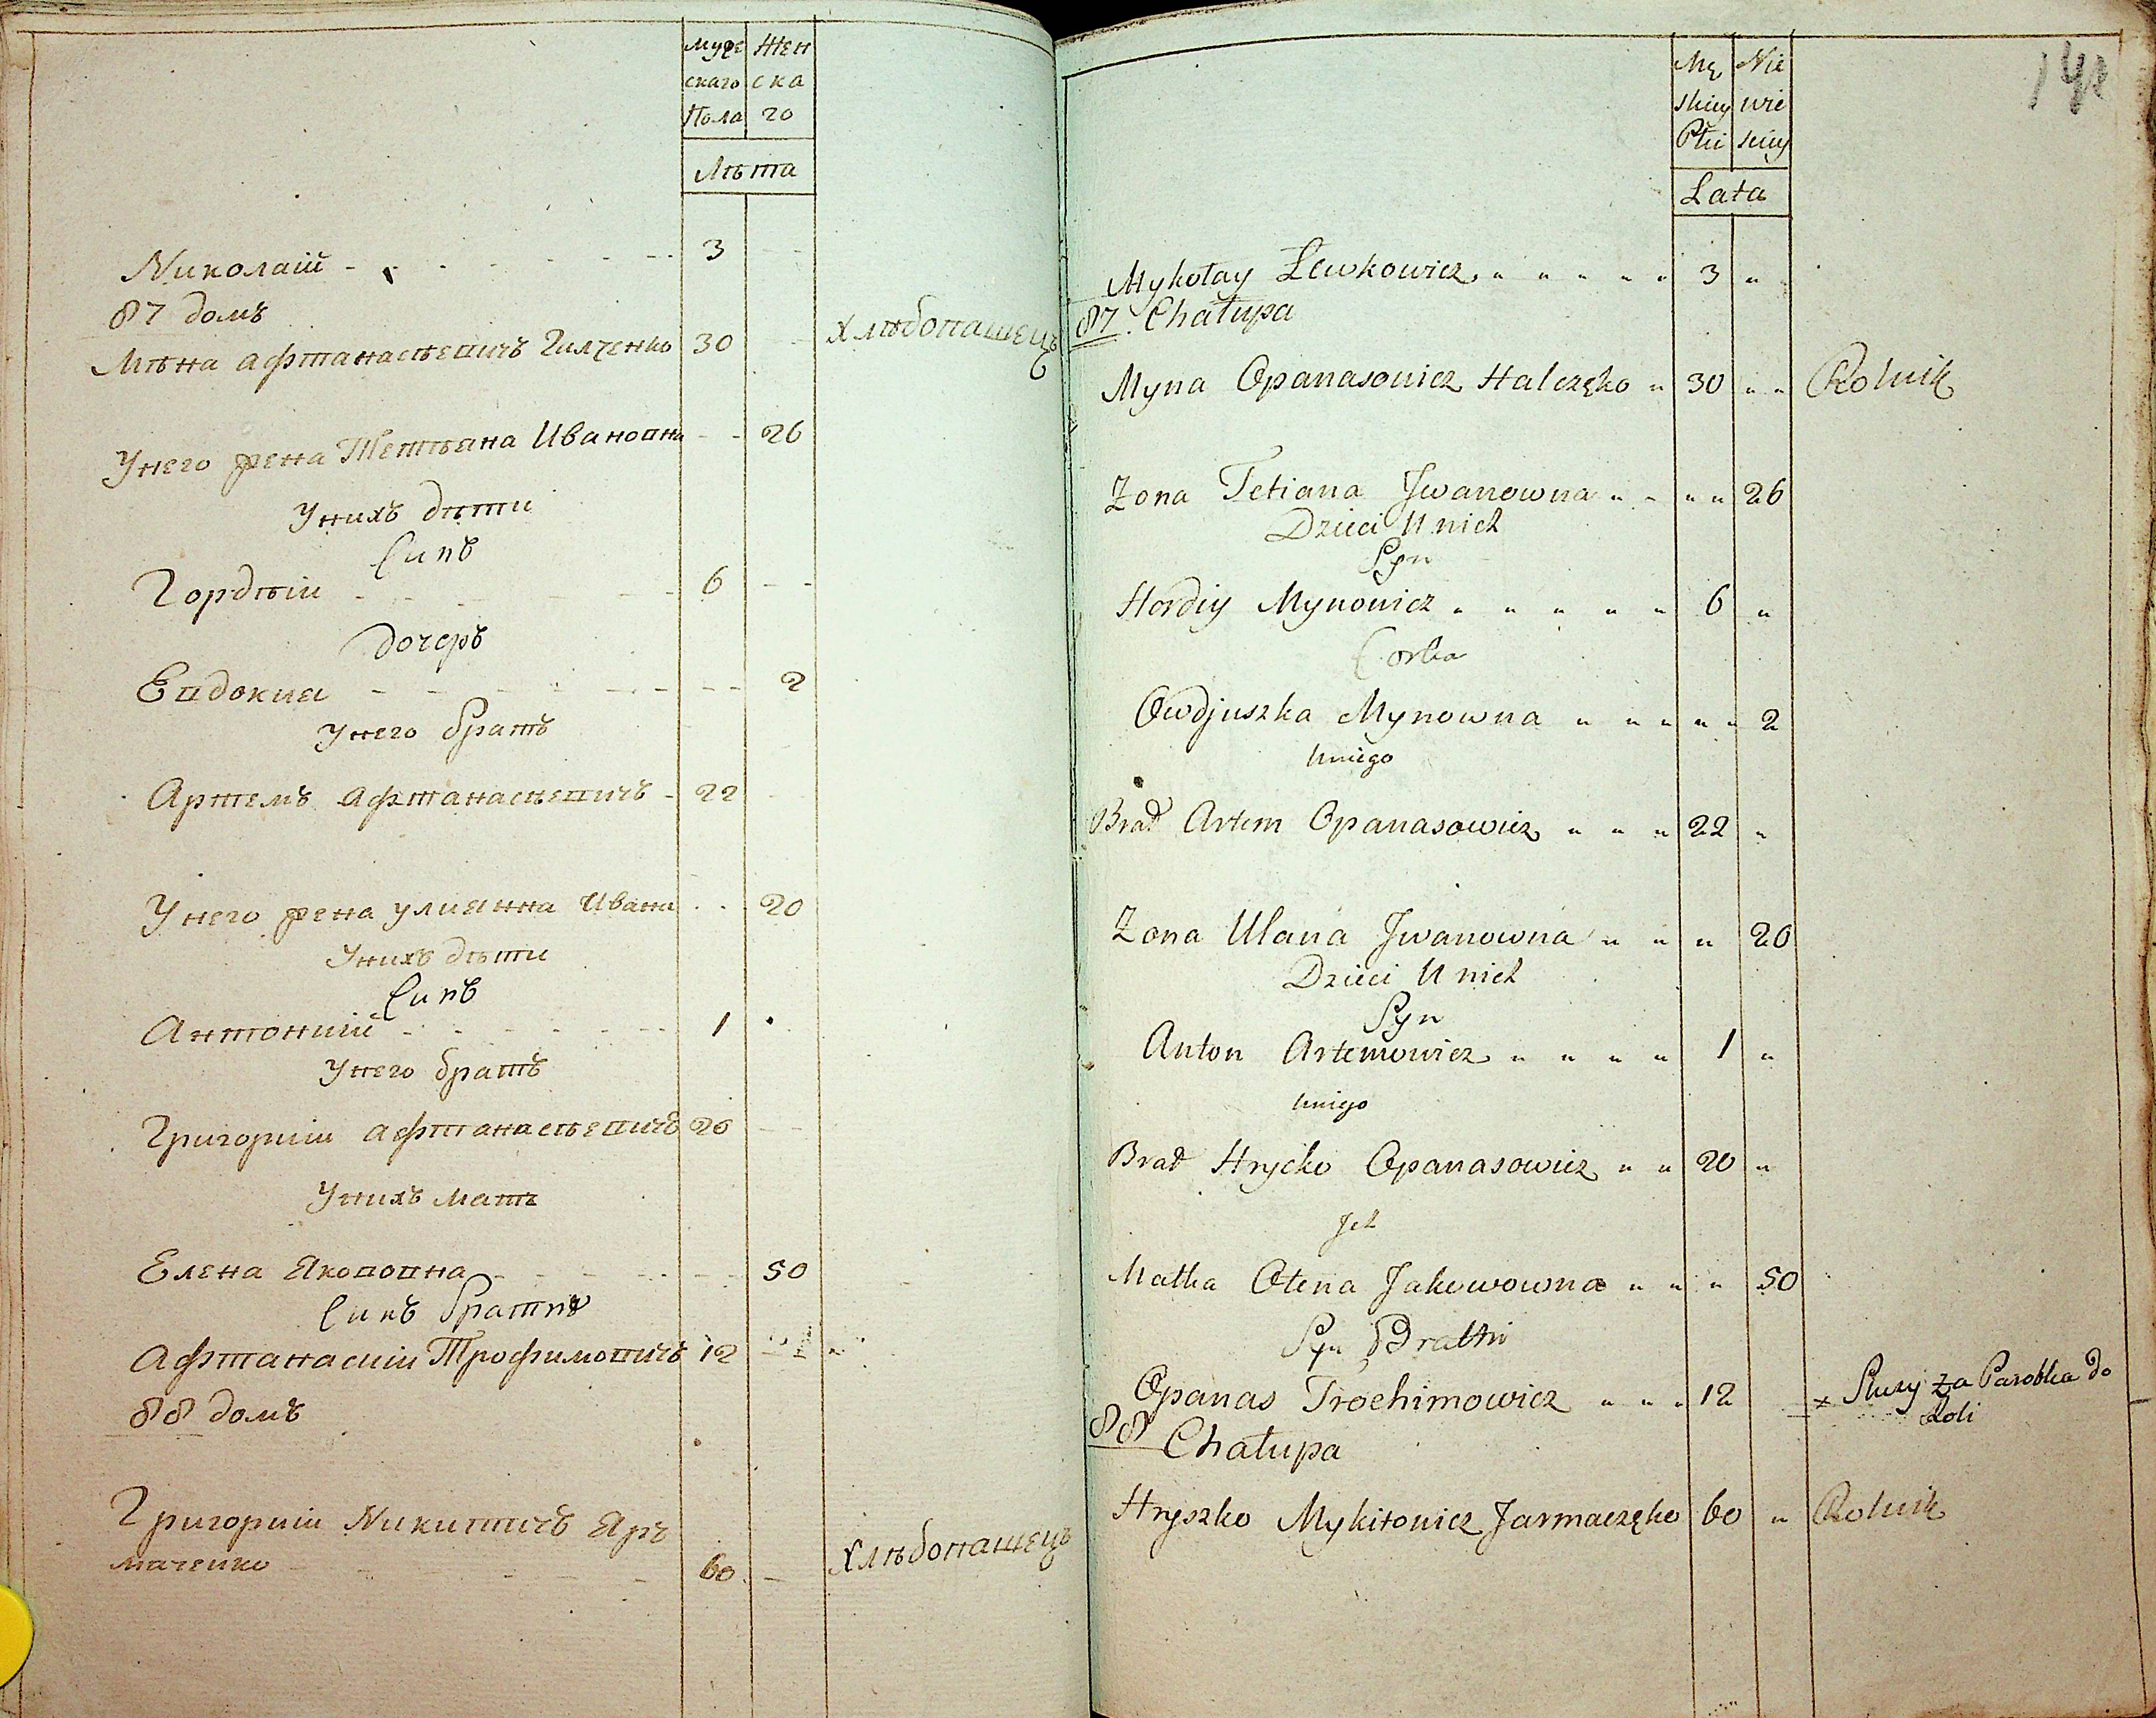 Муже Жен
скаго ска
Пола го
Лѣта
Николаій 3
87 домъ
Мѣна Афтанасѣевичъ Гилченко 30 Хлѣбопашецъ
Унего жена Тетѣяна Ивановна 26
Унихъ дѣти
Синъ
Гордѣій 6
дочеръ
Евдокия 2
Унего братъ
Артемъ Афтанасѣевичъ 22
Унего жена улиянна Ивани 20
Унихъ дѣти
Синъ
Антоний 1
Унего братъ
Григорий Афтанасѣевичъ 20
Унихъ мать
Елена Якововна 50
Синъ братнѣ
Афтанасий Трофимовичъ 12
88 домъ
Григорий Никитичъ Яръ
маченко 60 Хлѣбопашецъ
Mę Nie
skiey wie
Płci sciey
Lata
Mykołay Lewkowicz 3 "
87 Chałupa
Myna Opanasowicz Halczęko " 30 " " Rolnik
Zona Tetiana Jwanowna " " " " 26
Dzieci U nich
Syn
Hordiy Mynowicz " " " " " 6 "
Corka
Owdjuszka Mynowna " " " " " 2
Uniego
Brat Artem Opanasowicz " " " 22 "
Zona Ulana Jwanowna " " " 20
Dzieci U nich
Syn
Anton Artemowicz " " " " 1 "
Uniego
Brat Hrycko Opanasowicz " " 20 "
Jch
Matka Ołena Jakowowna " " " 50
Syn Bratni
Opanas Trochimowicz " " " 12 x Służy za Parobka do
Roli
88 Chałupa
Hryszko Mykitowicz Jarmaczęko 60 " Rolnik